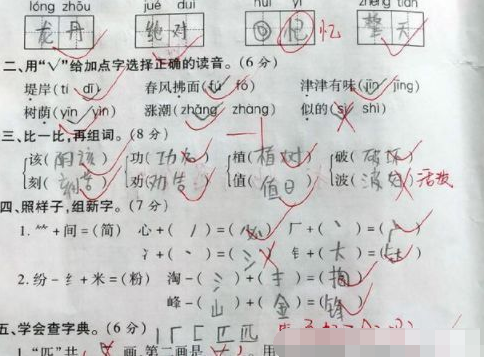 lóng zhōu jué duì huí yì zhēng tiān
龙 丹 绝 对 回 忆 忆 擎 天
二、用“√”给加点字选择正确的读音。(6 分)
堤岸(tí dī) 春风拂面(fú fó) 津津有味(jīn jīng)
树荫(yīn yìn) 涨潮(zhǎng zhàng) 似的(sì shì)
三、比一比,再组词。(8 分)
该( 应该 ) 功( 功 ) 植( 植树 ) 破( 破坏 )
刻( ) 劝( 劝告 ) 值( 值日 ) 波( 波 )
四、照样子,组新字。(7 分)
1. ⺮+间=(简) 心+( 丿 )=( 必 ) 厂+( 丶 )=( )
氵+( 丶 )=( ) 钅+( 大 )=( )
2. 纷-纟+米=(粉) 淘-( 氵 )+( 扌 )=( 掏 )
峰-( 山 )+( 金 )=( 锋 )
五、学会查字典。(6 分)
1.“匹”共 画,第二画是 。用